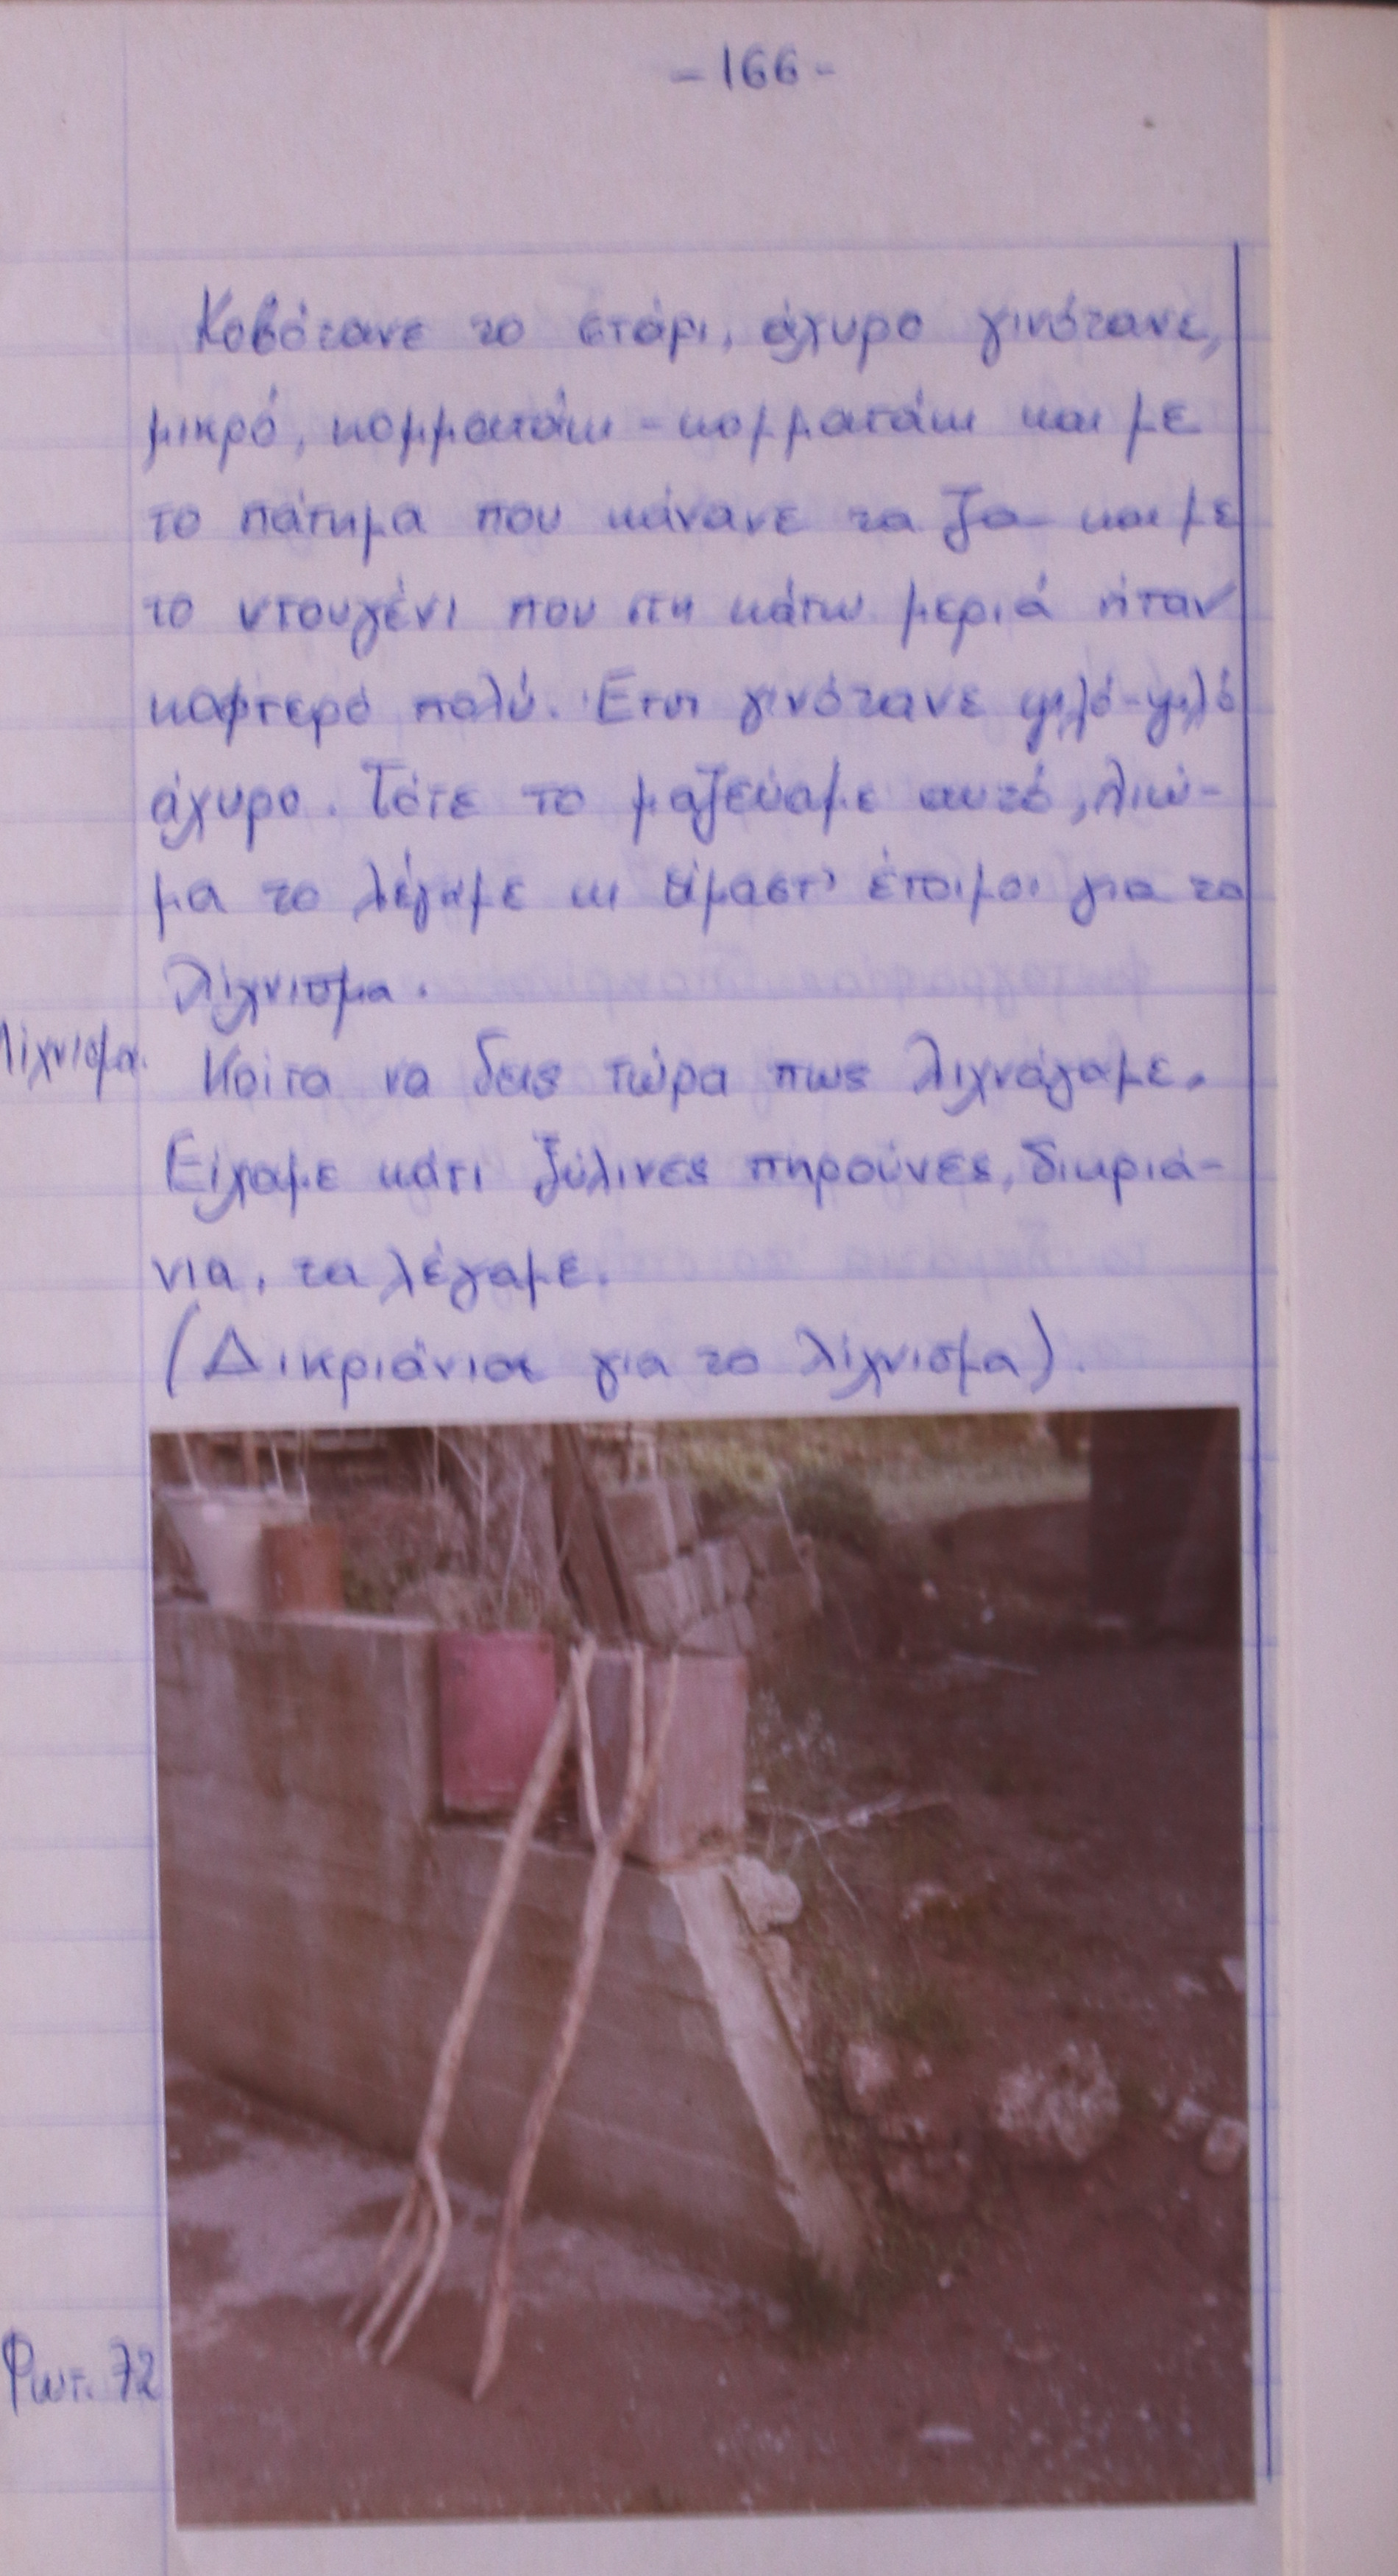 - 166 -
Κοβότανε το στάρι, άχυρο γινότανε,
μικρό, κομματάκι - κομματάκι και με
το πάτημα που κάνανε τα ζα και με
το ντουγένι που στη κάτω μεριά ήταν
κοφτερό πολύ. Έτσι γινότανε ψιλό-ψιλό
άχυρο. Τότε το μαζεύαμε αυτό, λιώ-
μα το λέγαμε κι είμαστ' έτοιμοι για το
λίχνισμα.
Λίχνισμα.
Κοίτα να δεις τώρα πως λιχνάγαμε.
Είχαμε κάτι ξύλινες πηρούνες, δικριά-
νια, τα λέγαμε.
(Δικριάνια για το λίχνισμα).
Φωτ. 72